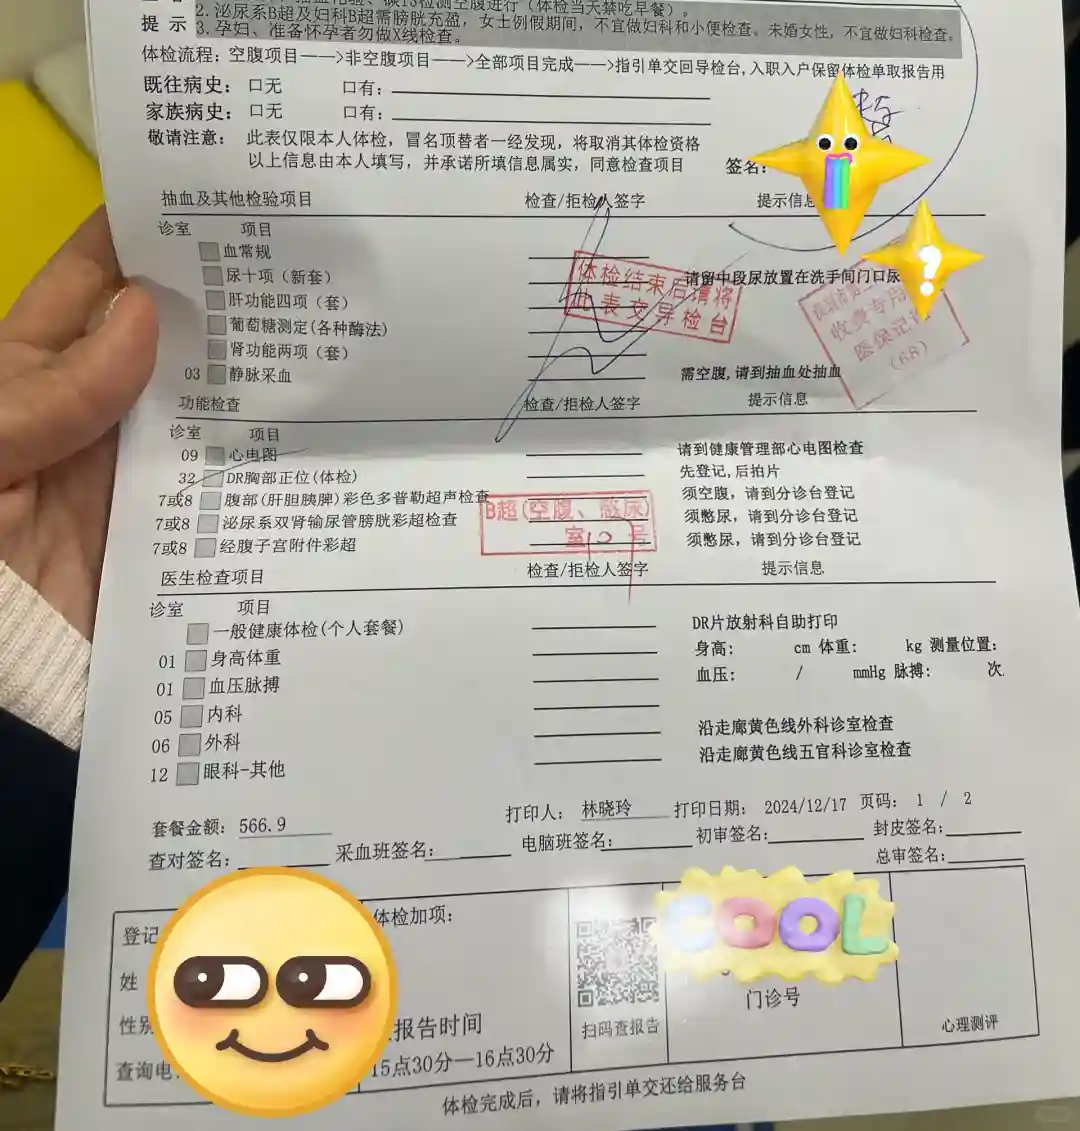 体检当天禁吃早餐)。
提 示 2.泌尿系B超及妇科B超需膀胱充盈,女士例假期间,不宜做妇科和小便检查。未婚女性,不宜做妇科检查。
3.孕妇、准备怀孕者勿做X线检查。
体检流程:空腹项目——>非空腹项目——>全部项目完成——>指引单交回导检台,入职入户保留体检单取报告用
既往病史: 口无 口有:
家族病史: 口无 口有:
敬请注意: 此表仅限本人体检,冒名顶替者一经发现,将取消其体检资格
以上信息由本人填写,并承诺所填信息属实,同意检查项目 签名:
抽血及其他检验项目 检查/拒检人签字 提示信息
诊室 项目
血常规
尿十项(新套) 请留中段尿放置在洗手间门口尿
肝功能四项(套)
葡萄糖测定(各种酶法)
肾功能两项(套)
03 静脉采血 需空腹,请到抽血处抽血
体检结束后请将
此表交导检台
收费专用
医保记
(68)
功能检查 检查/拒检人签字 提示信息
诊室 项目
09 心电图 请到健康管理部心电图检查
32 DR胸部正位(体检) 先登记,后拍片
7或8 腹部(肝胆胰脾)彩色多普勒超声检查 须空腹,请到分诊台登记
7或8 泌尿系双肾输尿管膀胱彩超检查 须憋尿,请到分诊台登记
7或8 经腹子宫附件彩超 须憋尿,请到分诊台登记
B超(空腹、憋尿)
室 号
医生检查项目 检查/拒检人签字 提示信息
诊室 项目
一般健康体检(个人套餐) DR片放射科自助打印
01 身高体重 身高: cm 体重: kg 测量位置:
01 血压脉搏 血压: / mmHg 脉搏: 次
05 内科
06 外科 沿走廊黄色线外科诊室检查
12 眼科-其他 沿走廊黄色线五官科诊室检查
套餐金额: 566.9 打印人: 林晓玲 打印日期: 2024/12/17 页码: 1 / 2
查对签名: 采血班签名: 电脑班签名: 初审签名: 封皮签名:
总审签名:
登记 体检加项:
COOL
姓
性别
查询电
报告时间
15点30分—16点30分
扫码查报告
门诊号
心理测评
体检完成后,请将指引单交还给服务台